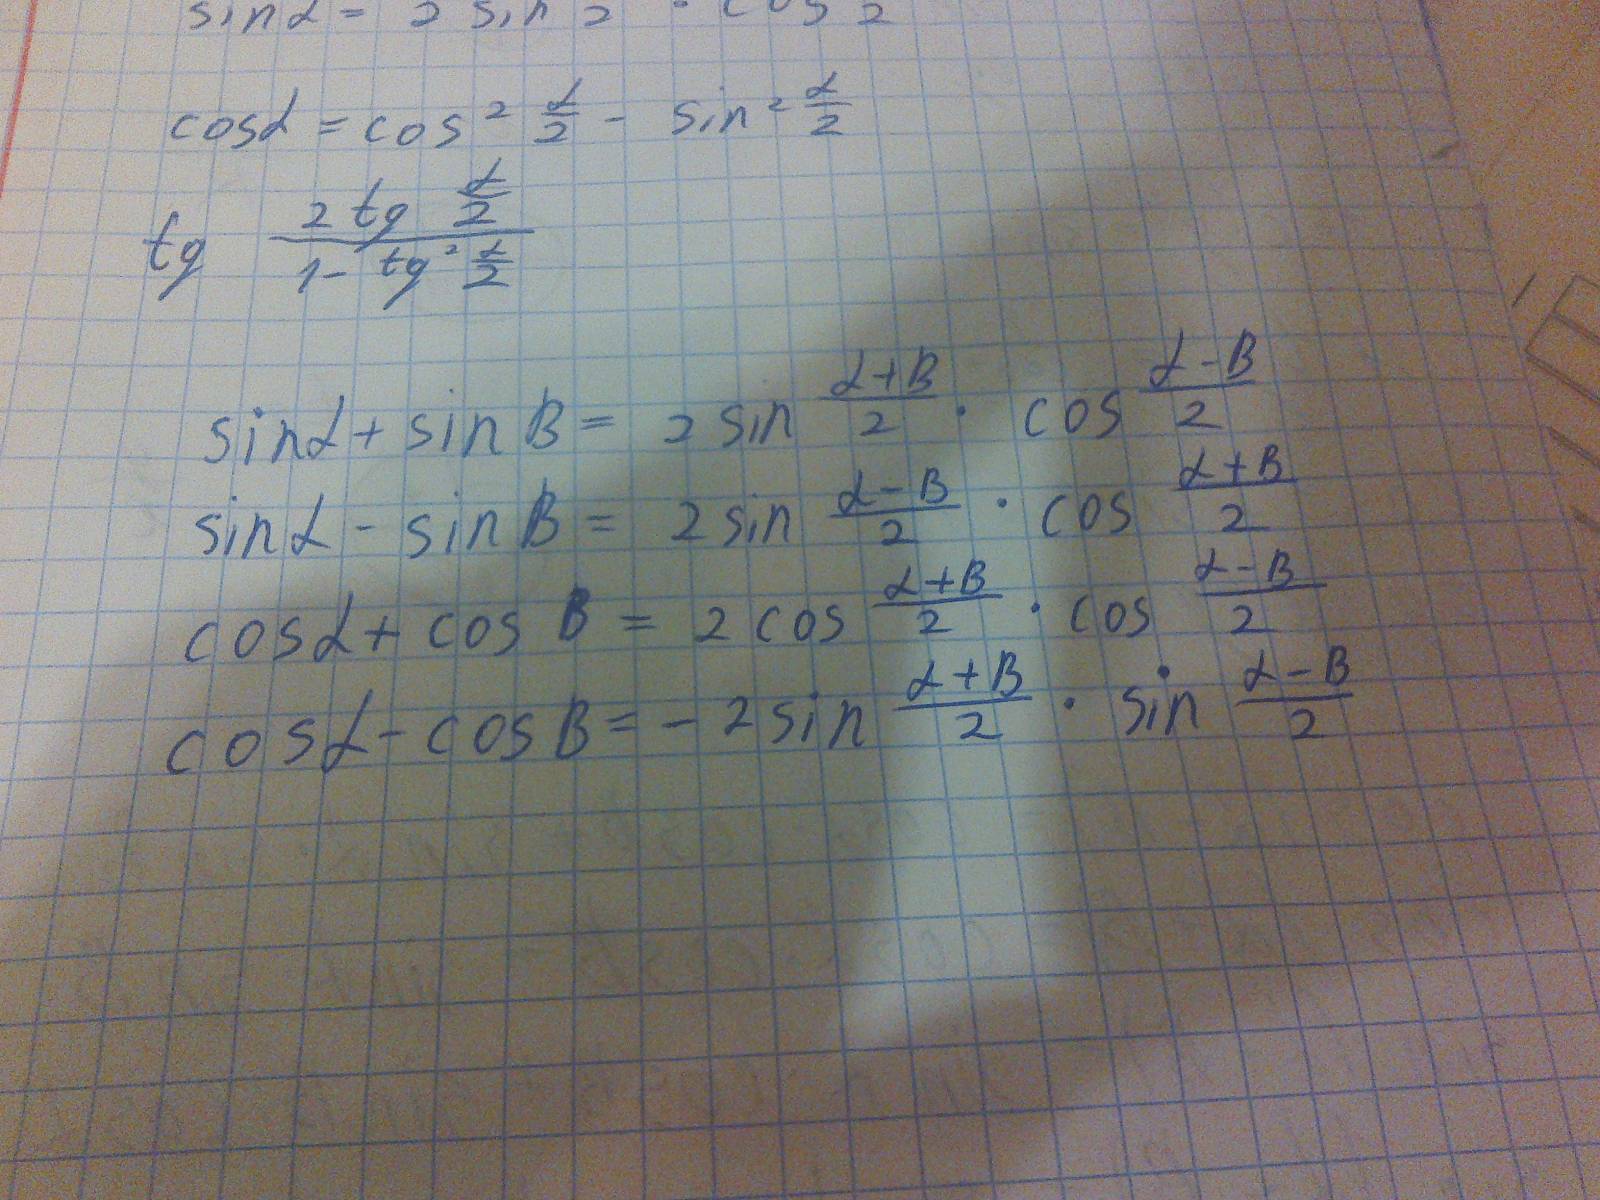 sinα = 2 sin 2 · cos 2
cosα = cos² α/2 - sin² α/2
tg (2 tg α/2)/(1 - tg² α/2)
sinα + sin B = 2 sin (α+B)/2 · cos (α-B)/2
sinα - sin B = 2 sin (α-B)/2 · cos (α+B)/2
cosα + cos B = 2 cos (α+B)/2 · cos (α-B)/2
cosα - cos B = - 2 sin (α+B)/2 · sin (α-B)/2